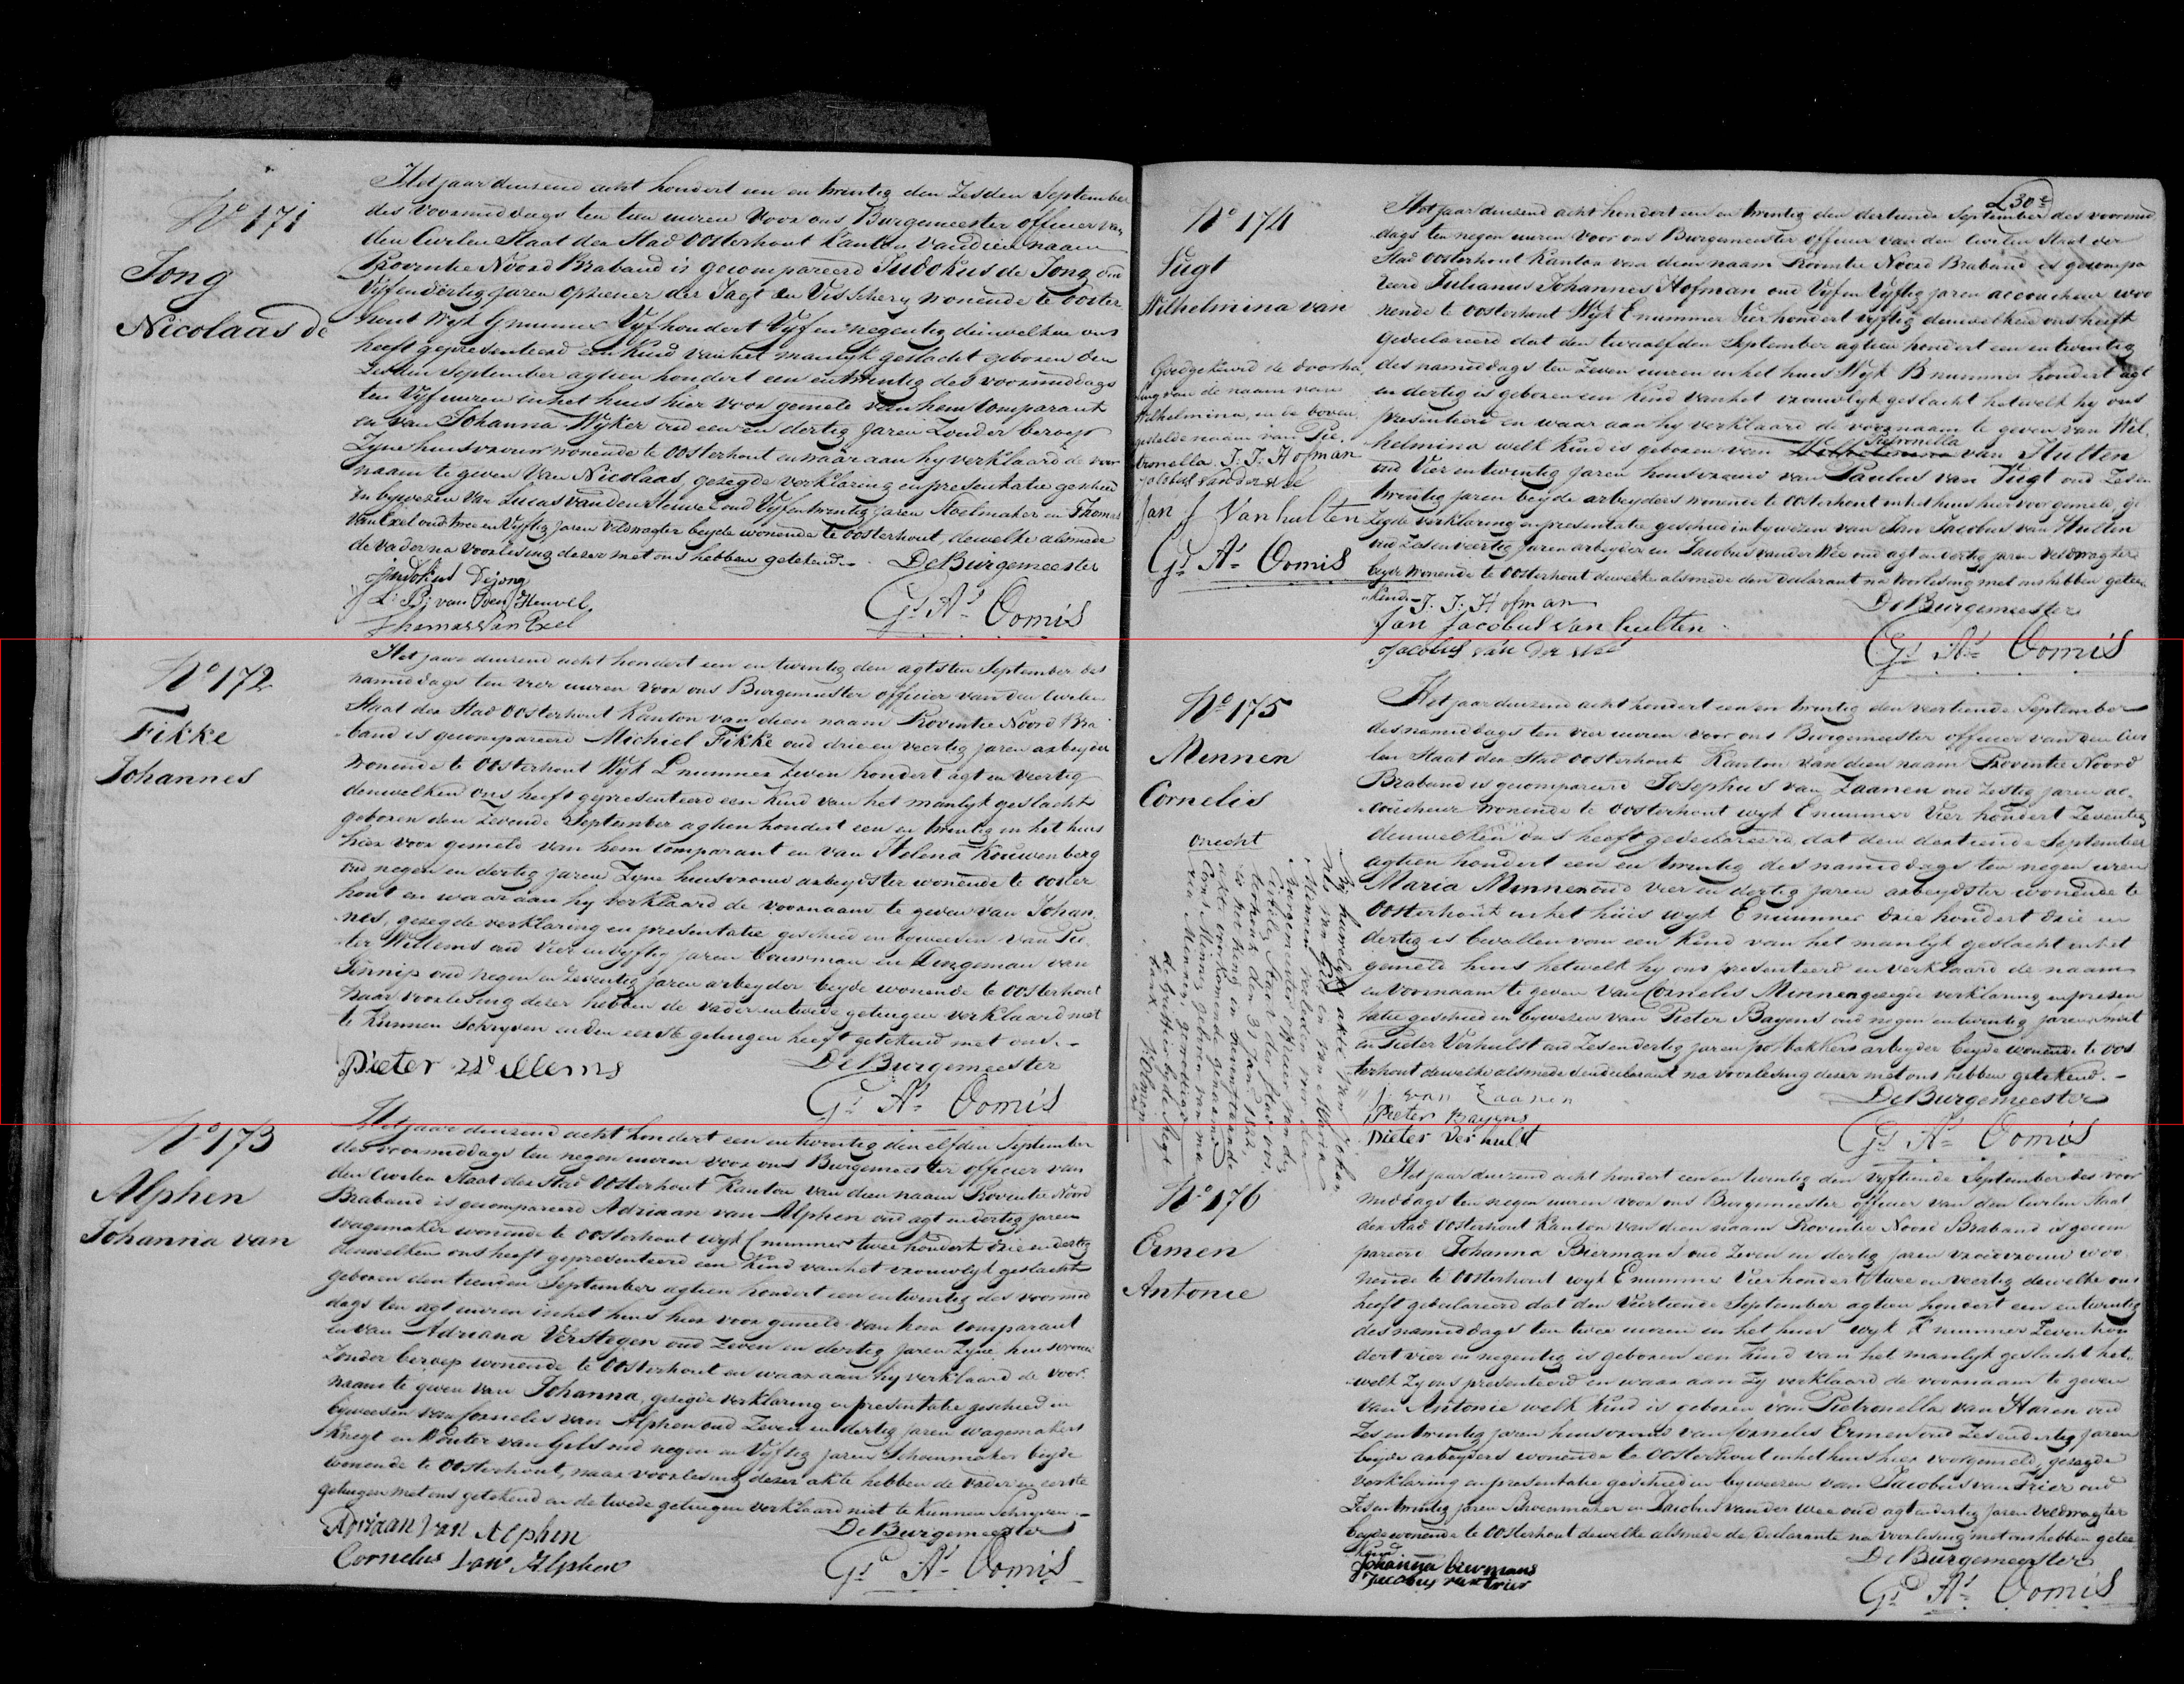 N° 171
Jong
Nicolaas de
Het jaar duizend acht hondert een en twintig den Zesden September
des voormiddags ten tien uuren voor ons Burgemeester officier van
den Civilen Staat der Stad Oosterhout Kanton van dien naam
Provintie Noord Braband is gecompareerd Judokus de Jong oud
Vyf en dertig jaren opziener der Jagt en Visschery wonende te Ooster
hout Wyk G nummer Vyfhondert Vyf en negentig dewelken ons
heeft gepresenteerd een Kind van het manlyk geslacht geboren den
Zesden September agtien hondert een en twintig des voormiddags
ten Vyf uuren in het huis hier voor gemeld van hem Comparant
en van Johanna Wyker oud een en dertig jaren Zonder beroep
Zyne huisvrouw wonende te Oosterhout en waar aan hy verklaard de voor
naam te geven van Nicolaas, gezegde verklaring en presentatie geschied
in bywezen van Lucas van den Heuvel oud Vyfentwintig jaren Stoelmaker en Thomas
van Exel oud twee en Vyftig jaren Veldwagter beyde wonende te Oosterhout, dewelke alsmede
de vader na voorlesing dezer met ons hebben getekend. De Burgemeester
Judokus Dejong
L: B: van Den Heuvel
Thomas van Exel
Gd. As. Oomis
N° 172
Fikke
Johannes
Het jaar duizend acht hondert een en twintig den agtsten September des
namiddags ten vier uuren voor ons Burgemeester officier van den Civilen
Staat der Stad Oosterhout Kanton van dien naam Provintie Noord Bra
band is gecompareerd Michiel Fikke oud drie en veertig jaren arbeyder
wonende te Oosterhout Wyk L nummer Zeven hondert agt en veertig
dewelken ons heeft gepresenteerd een Kind van het manlyk geslacht
geboren den Zevende September agtien hondert een en twintig in het huis
hier voor gemeld van hem Comparant en van Helena Kouwenberg
oud negen en dertig jaren Zyne huisvrouw arbeydster wonende te Ooster
hout en waar aan hy verklaard de voornaam te geven van Johan
nes, gezegde verklaring en presentatie geschied in bywezen van Pie
ter Willems oud Vier en vyftig jaren bouwman en Dingeman van
Ginnip oud negen en Zeventig jaren arbeyder beyde wonende te Oosterhout
naar voorlesing dezer hebben de vader en twede getuigen verklaard niet
te Kunnen Schryven en den eerste getuigen heeft getekend met ons.
Pieter Willems
De Burgemeester
Gd. As. Oomis
N° 173
Alphen
Johanna van
Het jaar duizend acht hondert een en twintig den elfden September
des voormiddags ten negen uuren voor ons Burgemeester officier van
den Civilen Staat der Stad Oosterhout Kanton van dien naam Provintie Noord
Braband is gecompareerd Adriaan van Alphen oud agt en dertig jaren
wagemaker wonende te Oosterhout wyk C nummer twee hondert drie en dertig
dewelken ons heeft gepresenteerd een Kind van het vrouwlyk geslacht
geboren den tienden September agtien hondert een en twintig des voormid
dags ten agt uuren in het huis hier voor gemeld van hem Comparant
en van Adriana Verstegen oud Zeven en dertig jaren Zyne huisvrouw
Zonder beroep wonende te Oosterhout en waar aan hy verklaard de voor
naam te geven van Johanna, gezegde verklaring en presentatie geschied in
bywezen van Cornelis van Alphen oud Zeven en dertig jaren wagemakers
Knegt en Wouter van Gils oud negen en Vyftig jaren Schoenmaker beyde
wonende te Oosterhout, naar voorlesing dezer akte hebben de vader en eerste
getuigen met ons getekend en de twede getuigen verklaard niet te Kunnen Schryven.
Adriaan Van Alphen
Cornelus Van Alphen
De Burgemeester
Gd. As. Oomis
N° 174
Vugt
Wilhelmina van
Goedgekeurd de doorha
ling van de naam van
Wilhelmina, en de boven
gestelde naam van Pie
tronella. J. J. Hofman
Jacobus van der Wee
Jan J Vanhulten
Gd. As. Oomis
230e
Het jaar duizend acht hondert een en twintig den dertiende September des voormid
dags ten negen uuren voor ons Burgemeester officier van den Civilen Staat der
Stad Oosterhout Kanton van dien naam Provintie Noord Braband is gecompa
reerd Julianus Johannes Hofman oud Vyf en Vyftig jaren accoucheur woo
nende te Oosterhout Wyk E nummer Vier hondert vyftig dewelken ons heeft
gedeclareerd dat den twaalfden September agtien hondert een en twintig
des namiddags ten Zeven uuren in het huis Wyk B nummer hondert agt
en dertig is geboren een Kind van het vrouwlyk geslacht hetwelk hy ons
presenteerd en waar aan hy verklaard de voornaam te geven van Wil
helmina welk Kind is geboren van Wilhelmina Pietronella van Hulten
oud Vier en twintig jaren huisvrouw van Paulus van Vugt oud Zeven
twintig jaren beyde arbeyders wonende te Oosterhout in het huis hier voor gemeld, ge
zegde verklaring en presentatie geschied in bywezen van Jan Jacobus van Hulten
oud Zes en veertig jaren arbeyder en Jacobus van der Wee oud agt en dertig jaren veldwagter
beyde wonende te Oosterhout dewelke alsmede den declarant na voorlesing met ons hebben getee
kend.
J. J. Hofman
Jan Jacobus van hulten
Jacobus van der Wee
De Burgemeester
Gd. As. Oomis
N° 175
Minnen
Cornelis
onecht
By huwelyks akte van Johan
nes van Gils en van Maria
Mennen verleden voor den
Burgemeester officier van den
Civielen Staat der Stad Oos
terhout den 3 Jan. 1822,
is het kind in nevenstaande
akte voorkomende genaamd
Corns. Minnen geboren van ma
ria Mennen, gewettigd
de Griffier by de Regt
bank
Het jaar duizend acht hondert een en twintig den veertiende September
des namiddags ten vier uuren voor ons Burgemeester officier van den Civi
len Staat der Stad Oosterhout Kanton van dien naam Provintie Noord
Braband is gecompareerd Josephus van Zaanen oud Zestig jaren ac
coucheur wonende te Oosterhout wyk E nummer Vier hondert Zeventig
dewelken ons heeft gedeclareerd, dat den dertiende September
agtien hondert een en twintig des namiddags ten negen uren
Maria Minnen oud vier en dertig jaren arbeydster wonende te
Oosterhout in het huis wyk E nummer drie hondert drie en
dertig is bevallen van een Kind van het manlyk geslacht in het
gemeld huis hetwelk hy ons presenteerd en verklaard de naam
en voornaam te geven van Cornelis Minnen gezegde verklaring en presen
tatie geschied in bywezen van Pieter Bayens oud negen en twintig jaren smit
en Pieter Verhulst oud Zes en dertig jaren potbakkers arbeyder beyde wonende te Oos
terhout dewelke alsmede den declarant na voorlesing dezer met ons hebben getekend.
J. van Zaanen
Pieter Bayens
Pieter Verhulst
De Burgemeester
Gd. As. Oomis
N° 176
Ermen
Antonie
Het jaar duizend acht hondert een en twintig den vyftiende September des voor
middags ten negen uuren voor ons Burgemeester officier van den Civilen Staat
der Stad Oosterhout Kanton van dien naam Provintie Noord Braband is gecom
pareerd Johanna Biermans oud Zeven en dertig jaren vroedvrouw woo
nende te Oosterhout wyk E nummer Vier hondert twee en veertig dewelke ons
heeft gedeclareerd dat den Veertiende September agtien hondert een en twintig
des namiddags ten twee uuren in het huis wyk F nummer Zeven hon
dert vier en negentig is geboren een Kind van het manlyk geslacht het
welk Zy ons presenteerd en waar aan Zy verklaard de voornaam te geven
van Antonie welk Kind is geboren van Pietronella van Haren oud
Zes en twintig jaren huisvrouw van Cornelis Ermen oud Zes en dertig jaren
beyde arbeyders wonende te Oosterhout in het huis hier voorgemeld, gezegde
verklaring en presentatie geschied in bywezen van Jacobus van Trier oud
Zes en twintig jaren Schoenmaker en Jacobus van der Wee oud agt en dertig jaren Veldwagter
beyde wonende te Oosterhout dewelke alsmede de declarante na voorlesing met ons hebben getee
kend.
Johanna biermans
Jacobus van trier
De Burgemeester
Gd. As. Oomis